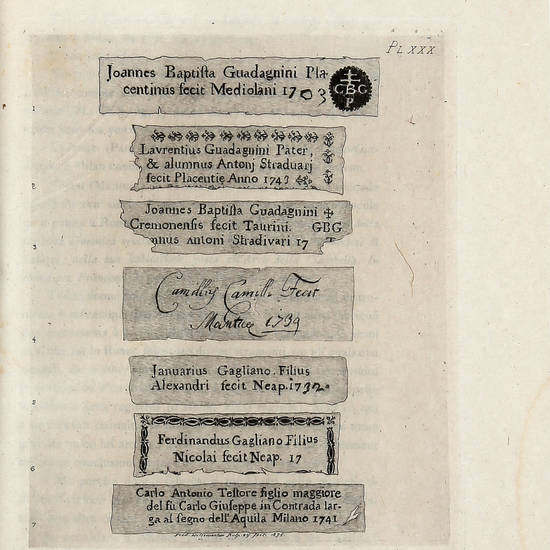 PL XXX
1
Joannes Baptista Guadagnini Pla-
centinus fecit Mediolani 1703
GBG
P
2
Lavrentius Guadagnini Pater,
& alumnus Antonj Straduarj
fecit Placentie Anno 1743
3
Joannes Baptista Guadagnini
Cremonensis fecit Taurini. GBG
mnus Antoni Stradivari 17
4
Camillus Camilli Fecit
Mantuæ 1739
5
Januarius Gagliano Filius
Alexandri fecit Neap. 1732.
6
Ferdinandus Gagliano Filius
Nicolai fecit Neap. 17
7
Carlo Antonio Testore figlio maggiore
del fù Carlo Giuseppe in Contrada lar-
ga al segno dell'Aquila Milano 1741